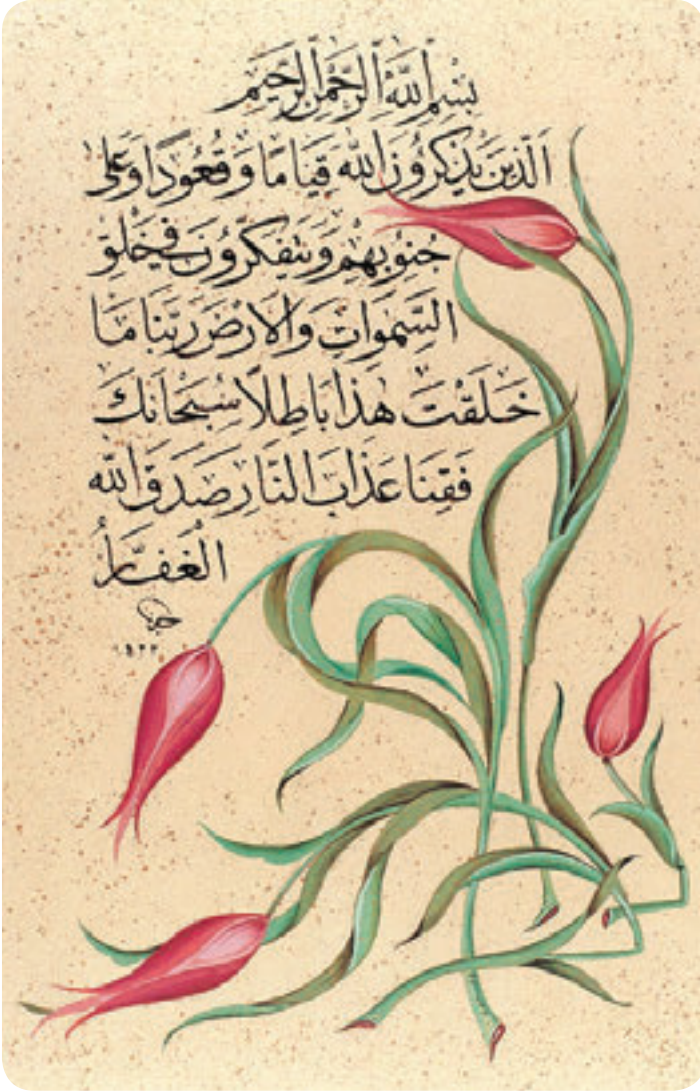 بِسْمِ اللّٰهِ الرَّحْمٰنِ الرَّحِيمِ
الَّذِينَ يَذْكُرُونَ اللّٰهَ قِيَامًا وَقُعُودًا وَعَلٰى
جُنُوبِهِمْ وَيَتَفَكَّرُونَ فِي خَلْقِ
السَّمٰوَاتِ وَالْاَرْضِ رَبَّنَا مَا
خَلَقْتَ هٰذَا بَاطِلًا سُبْحَانَكَ
فَقِنَا عَذَابَ النَّارِ صَدَقَ اللّٰهُ
الْغَفَّارُ